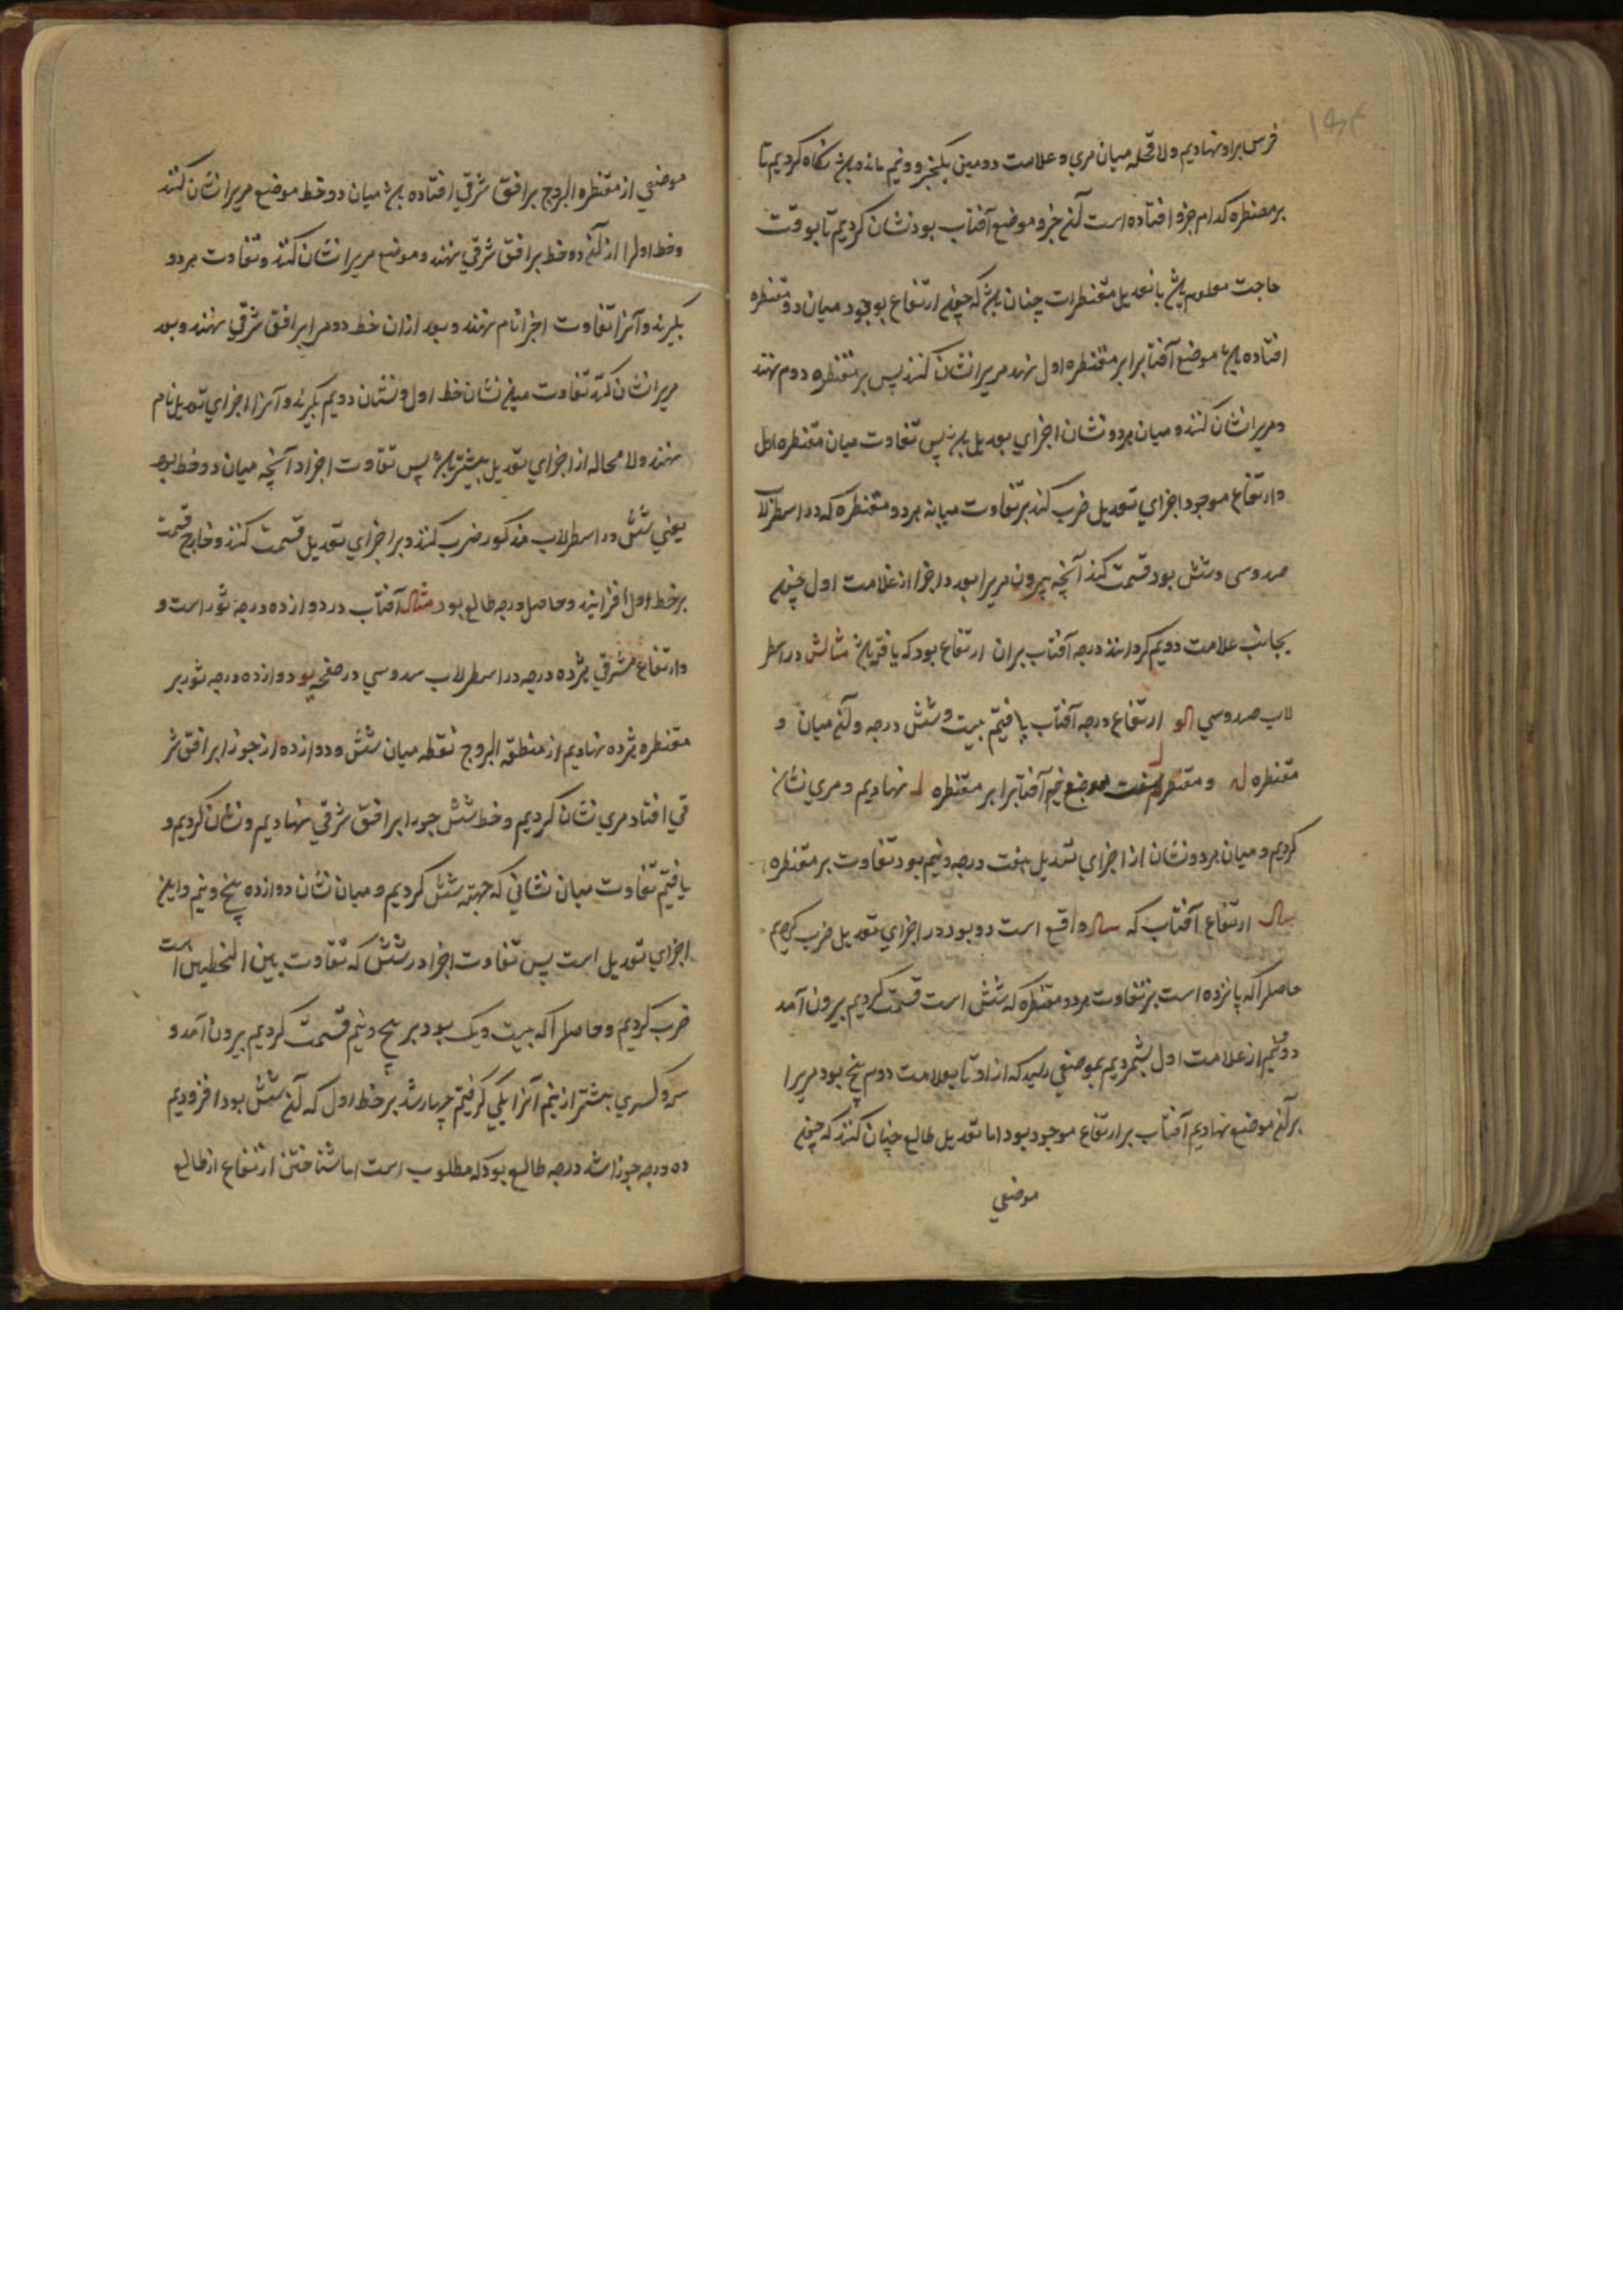 فرس برو نهادیم ولا محاله میان مری و علامت دومین یکجزو و نیم مانده باشد نکاه کردیم تا
بر مصنطره کدام جزو افتاده است آن جزو موضع آفتاب بود نشان کردیم تا بوقت
حاجت معلوم باشد با تعدیل مقنطرات چنان باشد که چون ارتفاع بوجود میان دو مقنطره
افتاده باشد موضع آفتابرا بر مقنطره اول نهند مریرا نشان کنند پس بر مقنطره دوم نهند
و مریرا نشان کنند و میان هردو نشان اجزای تعدیل باشد پس تفاوت میان مقنطره اول
و ارتفاع موجود اجزای تعدیل ضرب کنند بر تفاوت میانه هردو مقنطره که در اسطرلاب
سدوسی و شش بود قسمت کنند آنچه بیرون مریرا بعد و اجزا از علامت اول چون
بجانب علامت دویم کردانند درجه آفتاب بران ارتفاع بود که یافته باشد مثالش در اسطر
لاب سدوسی الو ارتفاع درجه آفتاب یافتیم بیست و شش درجه و آن میان و
مقنطره و مقنطره موضع آفتابرا بر مقنطره نهادیم و مری نشان
کردیم و میان هردو نشان از اجزای تعدیل هفت درجه و نیم بود تفاوت بر مقنطره
ارتفاع آفتاب که واقع است دو بود در اجزای تعدیل ضرب کردیم
حاصلرا که پانزده است بر تفاوت هردو مقنطره که شش است قسمت کردیم بیرون آمد
دو نیم از علامت اول بشمردیم بموضعی رسید که از او تا بعلامت دوم پنج بود مریرا
بر آن موضع نهادیم آفتاب بر ارتفاع موجود بود اما تعدیل طالع چنان کنند که چون
موضعی
موضعی از مقنطره البروج بر افق شرقی افتاده باشد میان دو خط موضع مریرا نشان کنند
و خط اولرا از آن دو خط بر افق شرقی نهند و موضع مریرا نشان کنند و تفاوت هردو
بکیرند و آنرا تفاوت اجزا نام نهند و بعد ازان خط دومرا بر افق شرقی نهند و بعد
مریرا نشان کنند تفاوت میان نشان خط اول و نشان دویم بکیرند و آنرا اجزای تعدیل نام
نهند ولا محاله از اجزای تعدیل بیشتر باشد پس تفاوت اجزا در آنچه میان دو خط بود
یعنی شش در اسطرلاب مذکور ضرب کنند و بر اجزای تعدیل قسمت کنند و خارج قسمت
بر خط اول افزایند و حاصل درجه طالع بود مثال آفتاب در دوازده درجه ثور است و
و ارتفاع شرقی هژده درجه در اسطرلاب سدوسی در صفحه یو دوازده درجه ثور بر
مقنطره هژده نهادیم از منطقه البروج نقطه میان شش و دوازده از جوزا بر افق شر
قی افتاد مری نشان کردیم و خط شش جوزا بر افق شرقی نهادیم و نشان کردیم و
یافتیم تفاوت میان نشانی که جهته شش کردیم و میان نشان دوازده پنج و نیم و این
اجزای تعدیل است پس تفاوت اجزا در شش که تفاوت بین الخطین است
ضرب کردیم و حاصلرا که بیست و یک بود بر پنج و نیم قسمت کردیم بیرون آمد و
سه و کسری بیشتر از نیم آنرا یکی کرفتیم چهار شد بر خط اول که آن شش بود افزودیم
ده درجه جوزا شد درجه طالع بود که مطلوب است اما شناختن ارتفاع از طالع